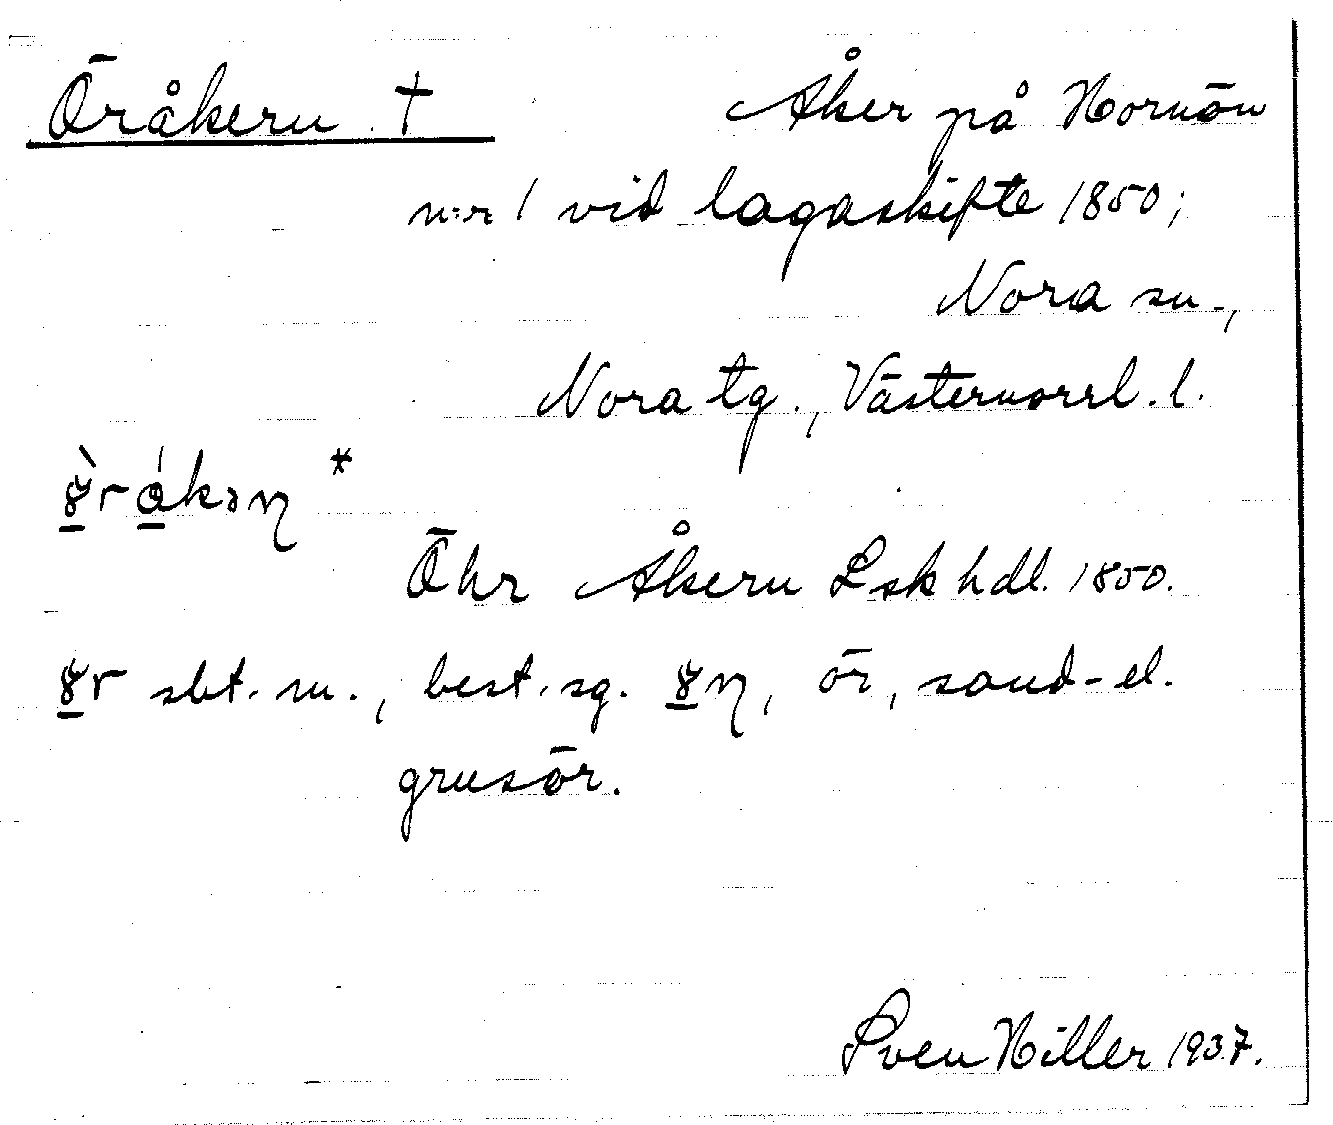 Öråkern † Åker på Hornön
n:r 1 vid lagaskifte 1850;
Nora sn.,
Nora tg., Västernorrl. l.
*
Öhr Åkern Lskhdl. 1850.
sbt. m., best. sg. , ör, sand- el.
grusör.
Sven Hiller 1937.